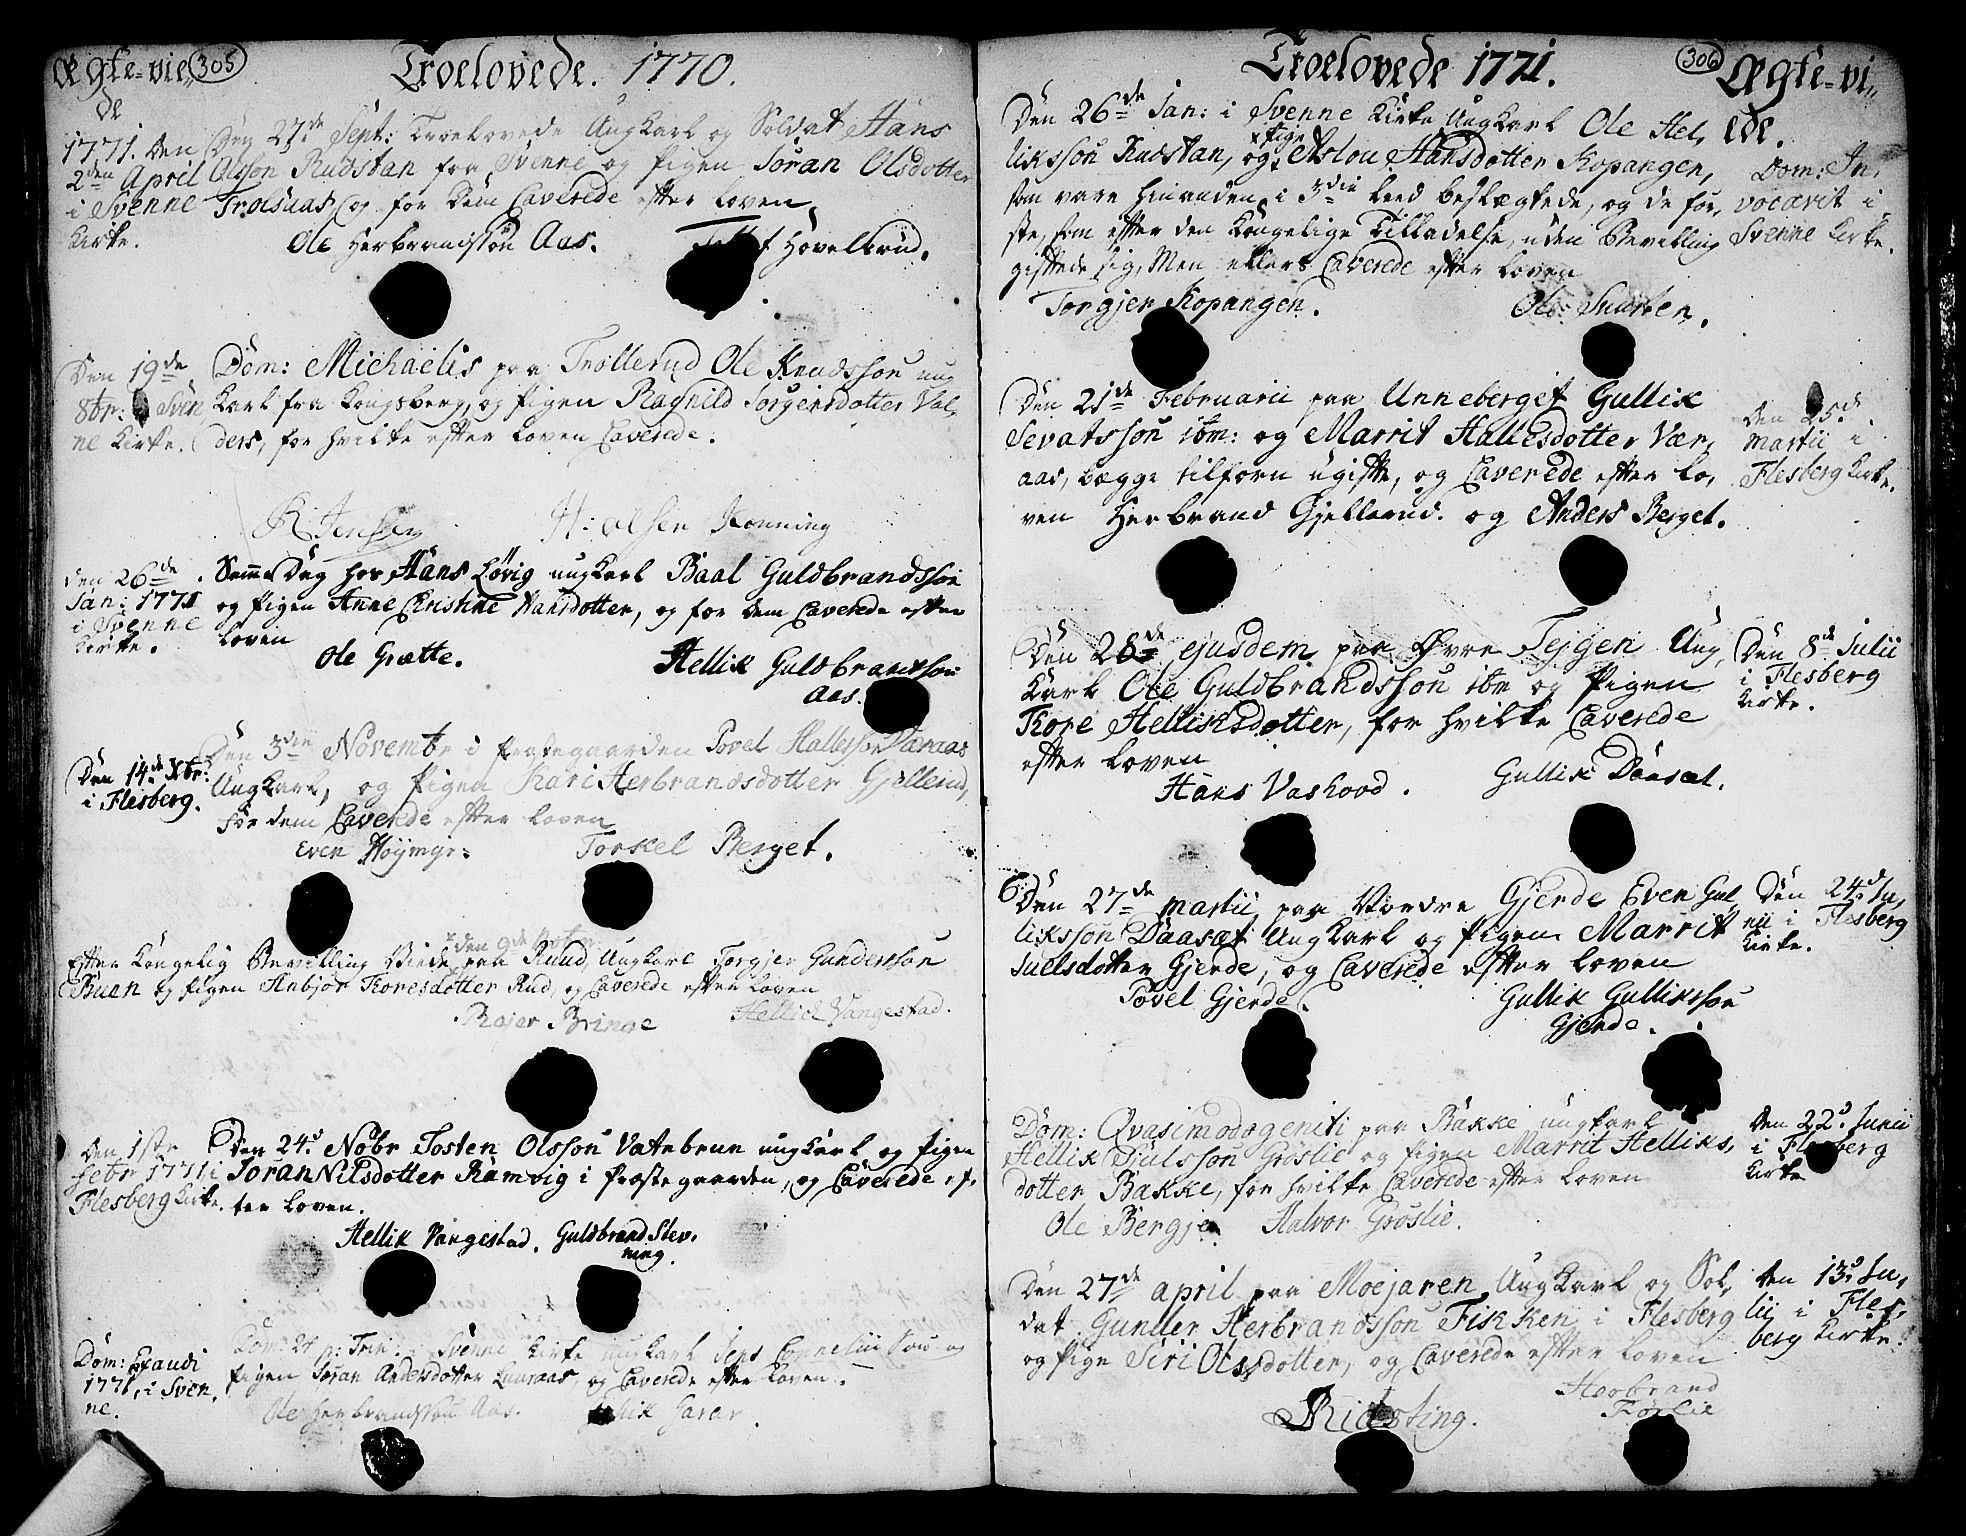 Ægte-vie„ 305 Troelovede. 1770.
de
1771. Den
2den April
i Svenne
Kirke.
Den 27de Sept: Troelovede UngKarl og Soldat Hans
Olsson Rudstan fra Svenne og Pigen Joran Olsdotter
og for dem Caverede efter loven
Ole Herbrandssøn Aas. Hovellerud.
Den 19de
8br: i Sven„
ne Kirke.
Dom: Michaelis paa Trollerud Ole Knudsson ung
Karl fra Kongsberg, og Pigen Ragnild Torgersdotter Val„
ders, for hvilke efter loven Caverede.
R Jensøn H: olsen Konning
Den 26de
Jan: 1771
i Svenne
Kirke.
Samme Dag hos Hans Løvig ungKarl Baal Guldbrandsson
og Pigen Anne Christine Hansdotter, og for dem Caverede efter
loven
Ole Grætte. Hellik Guldbrandsson
Aas.
Den 14de Xbr:
i Flesberg.
Den 3die Novembr i Præstegaarden Povel Hallesson Væraas
UngKarl, og Pigen Kari Herbrandsdotter Gjellerud,
for dem Caverede efter loven
Even Høymyr: Torkel Berget.
den 9de Nobr:
Efter Kongelig Bevilling Viede paa Ruud Ungkarl Torgjer Gunderssøn
Buan og Pigen Anbjør Toresdotter Rud, og Caverede efter loven
Rejer Bringe Hellick Vangestad.
Den 1ste
Febr 1771 i
Flesberg Kirke.
Den 24d Nobr Tosten Olsson Vatnebrun ungKarl og Pigen
Joran Nilsdotter Ramvig i Præstegaarden, og Caverede ef„
ter loven.
Hellik Vangestad. Guldbrand Stev„
ning
Dom: Exaudi
1771, i Sven„
ne.
Dom: 24 p: Trin: i Svenne Kirke ungKarl Jens Cornelii Søn og
Pigen Joran Andersdotter Lauraas, og Caverede efter loven.
Ole Herbrandssøn Aas.
Troelovede 1771. 306 Ægte-vi„
ede.
Den 26de Jan: i Svenne Kirke UngKarl Ole Hel„
likssøn Rudstan, og Pige Aslou Hansdotter Kopangen,
som vare hinanden i 3die leed beslægtede, og de før„
ste, som efter den Kongelige Tilladelse, uden Bevilling
giftede sig, Men ellers Caverede efter loven
Torgjer Kopangen. Ole Snarten.
Dom: In„
vocavit i
Svenne Kirke.
Den 21de Februarii paa Unneberget Gullik
Sevatssøn ibm: og Marrit Hallesdotter Vær„
aas, begge tilforn ugifte, og Caverede efter lo„
ven Herbrand Gjellerud. og Anders Berget.
den 25d
Martii i
Flesberg Kirke.
Den 28de ejusdem paa Øvre Tejgen Ung„
Karl Ole Guldbrandssøn ibm og Pigen
Tore Helliksdotter, for hvilke Caverede
efter loven
Hans Vashovd. Gullik Daasæt.
Den 8de Julii
i Flesberg
Kirke.
Den 27de Martii paa Nordre Gjerde Even Gul„
likssøn Daasæt UngKarl og Pigen Marrit
Juelsdotter Gjerde, og Caverede efter loven
Povel Gjerde. Gullik Gulliksson
Gjerde.
Den 24d Ju„
nii i Flesberg
Kirke.
Dom: Qvasimodogeniti paa Bakke ungkarl
Hellik Djulsson Grøslie og Pigen Marrit Helliks„
dotter Bakke, for hvilke Caverede efter loven
Ole Bergje Halvor Grøslie.
den 22d Junii
i Flesberg
Kirke
Den 27de april paa Moejaren UngKarl og Sol„
dat Gunder Herbrandssøn Fikken i Flesberg
og Pige Siri Olssdotter, og Caverede efter loven
Herbrand
Forlie
den 13d Ju„
lii i Fles„
berg Kirke.